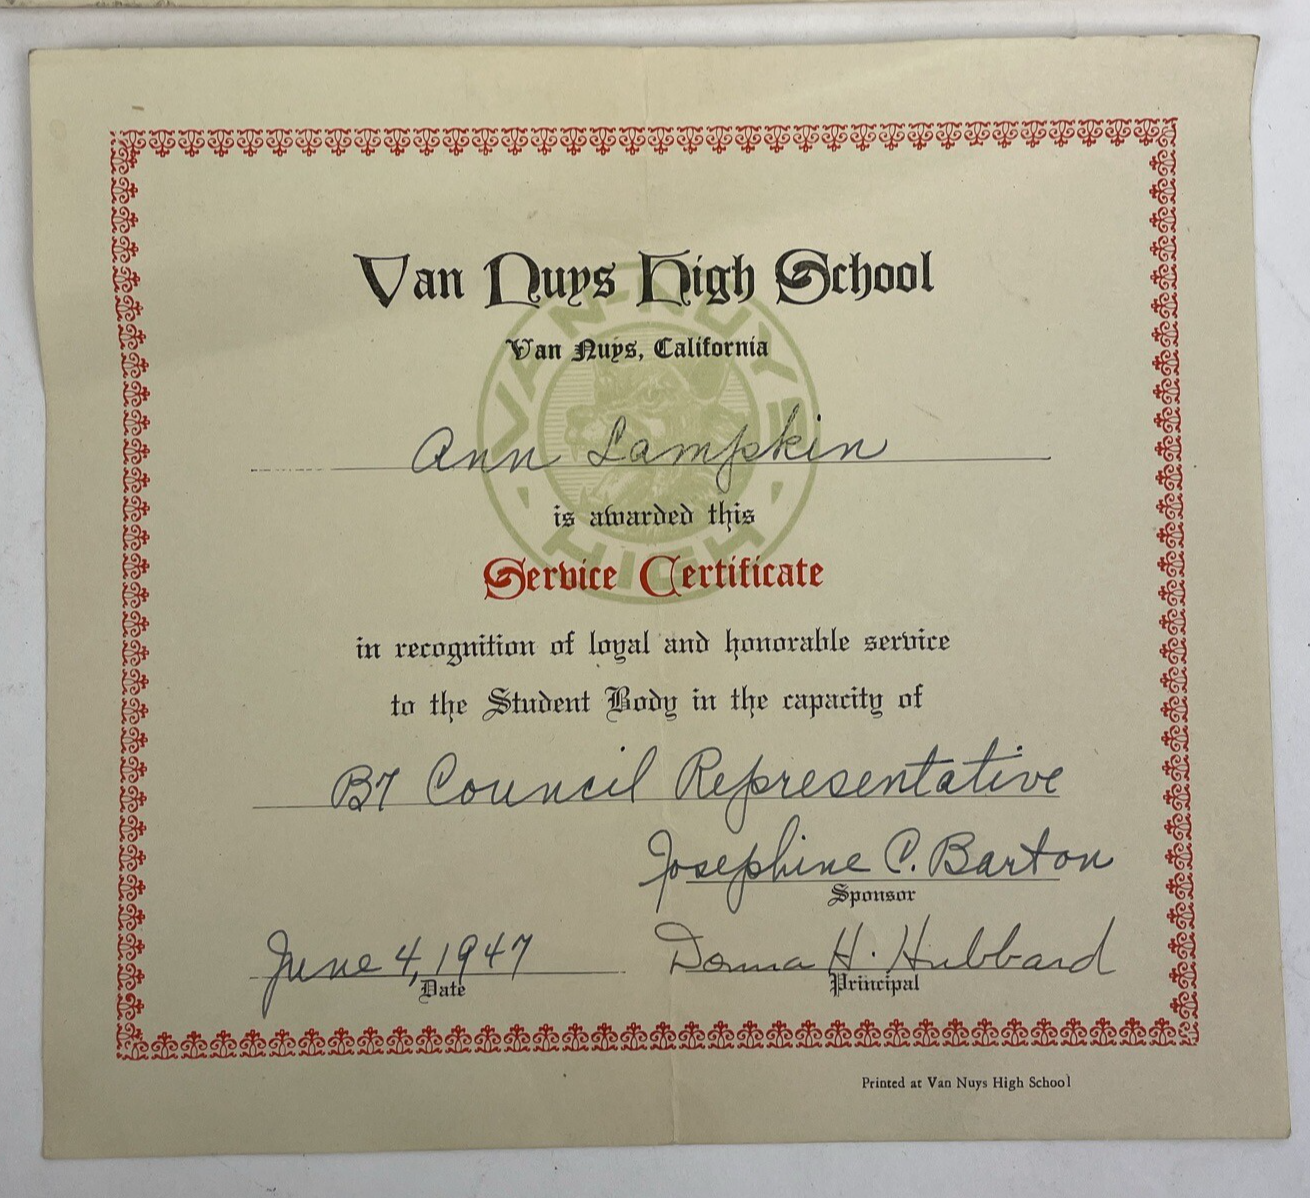 Van Nuys High School
Van Nuys, California
VAN-NUYS
HIGH
Ann Lampkin
is awarded this
Service Certificate
in recognition of loyal and honorable service
to the Student Body in the capacity of
B7 Council Representative
Josephine C. Barton
Sponsor
June 4, 1947
Donna H. Hubbard
Date
Principal
Printed at Van Nuys High School